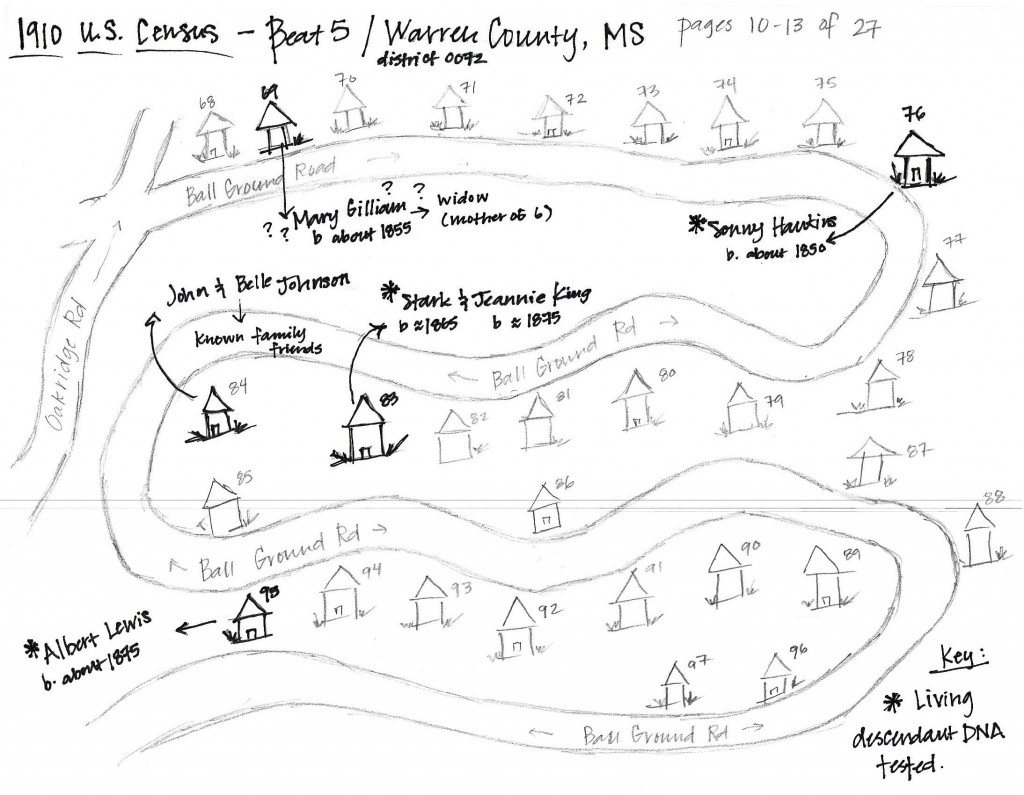 1910 U.S. Census - Beat 5 / Warren County, MS pages 10-13 of 27
district 0072
68
69
70
71
72
73
74
75
76
Ball Ground Road →
? ? Mary Gilliam ? ? → widow
b about 1855 (mother of 6)
* Sonny Hawkins
b. about 1850
77
Oakridge Rd
John & Belle Johnson
Known family
friends
* Stark & Jeannie King
b ≈ 1865 b ≈ 1875
← Ball Ground Rd →
78
79
80
81
82
83
84
85
86
87
88
← Ball Ground Rd →
89
90
91
92
93
94
95
* Albert Lewis
b. about 1875
96
97
← Ball Ground Rd →
Key:
* Living
descendant DNA
tested.